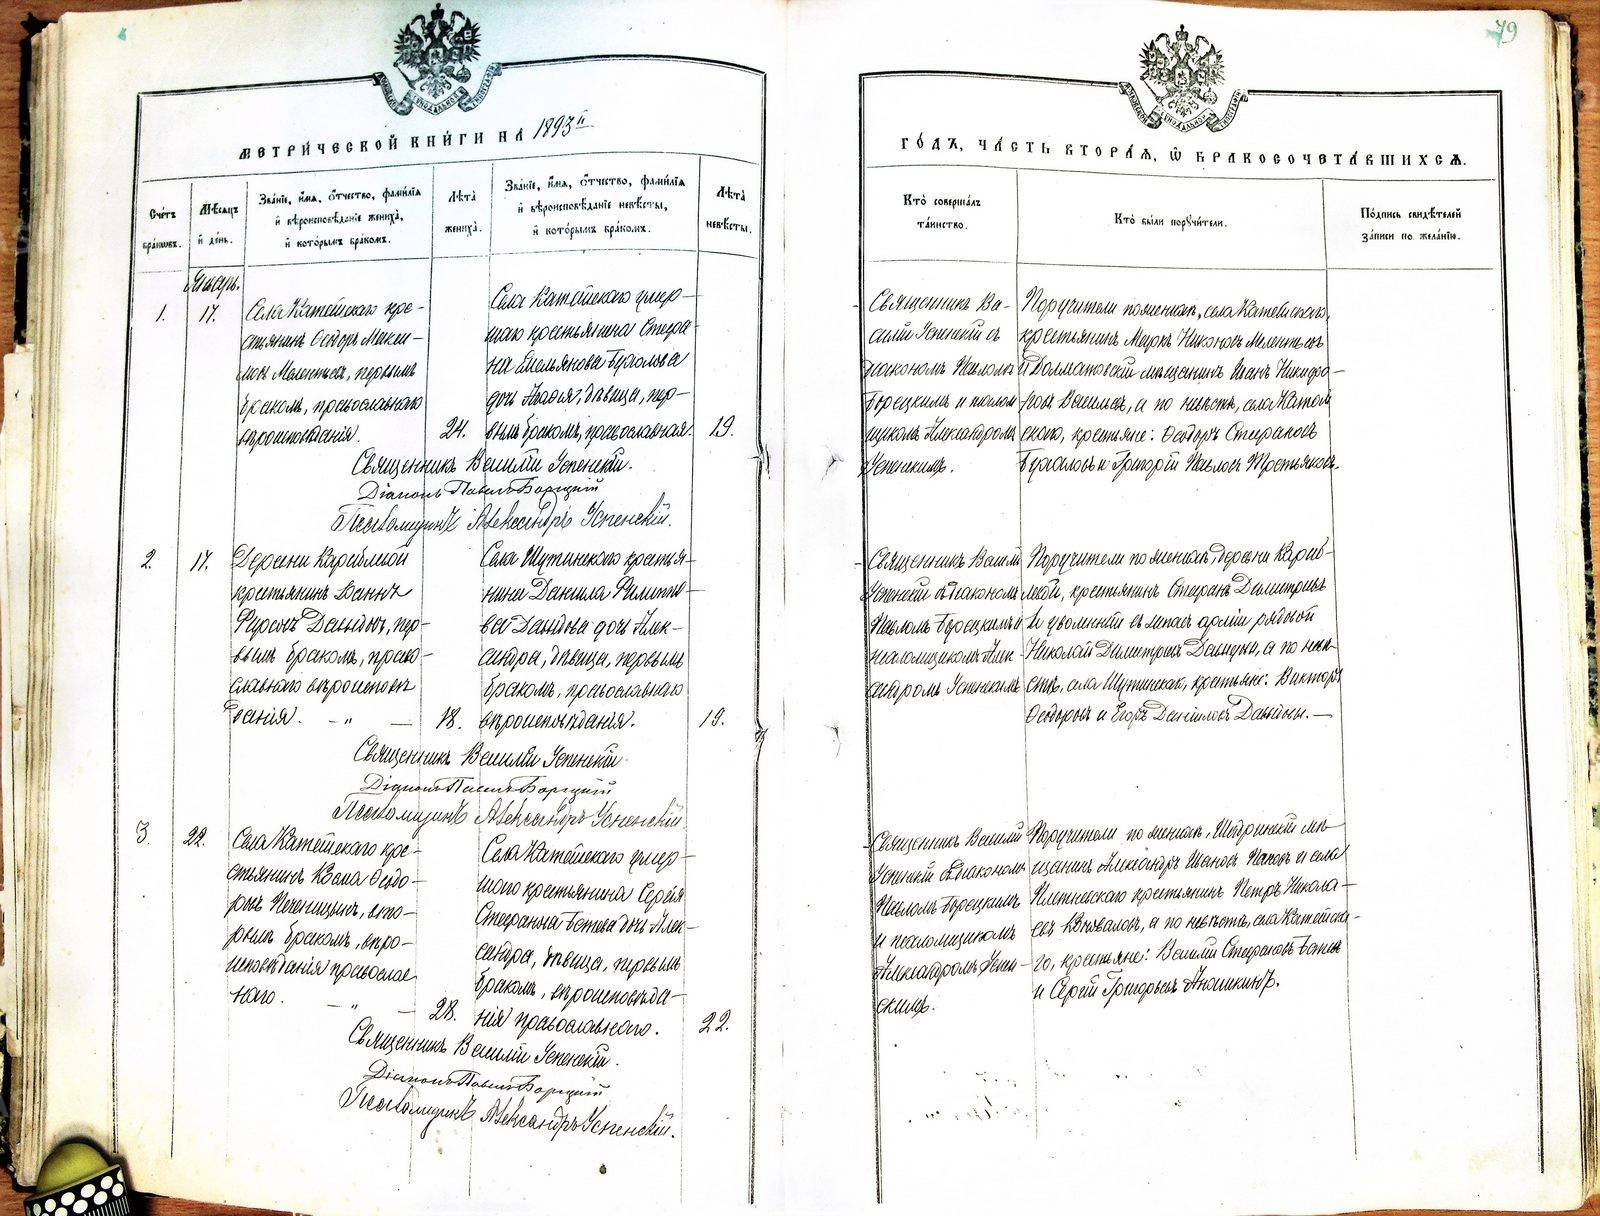 79
МЕТРИЧЕСКОЙ КНИГИ НА 1893й
ГОДЪ, ЧАСТЬ ВТОРАЯ, Ѿ БРАКОСОЧЕТАВШИХСЯ.
Счетъ браковъ.
Мѣсяцъ и день.
Званіе, имя, отчество, фамилія
и вѣроисповѣданіе жениха,
и которымъ бракомъ.
Лѣта
жениха.
Званіе, имя, отчество, фамилія
и вѣроисповѣданіе невѣсты,
и которымъ бракомъ.
Лѣта
невѣсты.
Кто совершалъ
таинство.
Кто были поручители.
Подпись свидѣтелей
записи по желанію.
Январь.
1.
17.
Села Катайскаго кре-
стьянинъ Ѳедоръ Макси-
мовъ Мелентьевъ, первымъ
бракомъ, православнаго
вѣроисповѣданія.
24.
Села Катайскаго умер-
шаго крестьянина Стефа-
на
дочь Агафія, дѣвица, пер-
вымъ бракомъ, православная.
19.
Священникъ Ва-
силій Успенскій съ
діакономъ Павломъ
Борецкимъ и псалом-
щикомъ Александромъ
Успенскимъ.
Поручители по женихѣ, села Катайскаго,
крестьянинъ Маркъ Никоновъ Мелентьевъ
и Далматовскій мѣщанинъ Иванъ Никифо-
ровъ Васильевъ, а по невѣстѣ, села Катай
скаго, крестьяне: Ѳеодоръ Стефановъ
и Григорій Павловъ Третьяковъ.
Священникъ Василій Успенскій.
Діаконъ Павелъ Борецкій
Псаломщикъ Александръ Успенскій.
2.
17.
Деревни
крестьянинъ
Фирсовъ Давыдовъ, пер-
вымъ бракомъ, право-
славнаго вѣроисповѣ
данія. — „ —
18.
Села Шутинскаго крестья-
нина Данила Филиппо-
ва Давыдова дочь Алек-
сандра, дѣвица, первымъ
бракомъ, православнаго
вѣроисповѣданія.
19.
Священникъ Василій
Успенскій съ діакономъ
Павломъ Борецкимъ и
псаломщикомъ Алек-
сандромъ Успенскимъ
Поручители по женихѣ, деревни
крестьянинъ Стефанъ Димитріевъ
и уволенный въ запасъ арміи рядовой
Николай Димитріевъ Давыдовы, а по невѣ-
стѣ, села Шутинскаго, крестьяне: Викторъ
Ѳеодоровъ и Егоръ Даниловъ Давыдовы. —
Священникъ Василій Успенскій.
Діаконъ Павелъ Борецкій
Псаломщикъ Александръ Успенскій.
3.
22.
Села Катайскаго кре-
стьянинъ Козма Ѳеодо-
ровъ Печеницынъ, вто-
рымъ бракомъ, вѣро-
исповѣданія православ
наго. — „ —
28.
Села Катайскаго умер-
шаго крестьянина Сергія
Стефанова дочь Алек-
сандра, дѣвица, первымъ
бракомъ, вѣроисповѣда-
нія православнаго.
22.
Священникъ Василій
Успенскій съ діакономъ
Павломъ Борецкимъ
и псаломщикомъ
Александромъ Успен-
скимъ.
Поручители по женихѣ, Шадринскій мѣ-
щанинъ Александръ Ивановъ и села
крестьянинъ Петръ Никола-
евъ Коноваловъ, а по невѣстѣ, села Катайска-
го, крестьяне: Василій Стефановъ
и Сергій Григорьевъ Аношкинъ.
Священникъ Василій Успенскій.
Діаконъ Павелъ Борецкій
Псаломщикъ Александръ Успенскій.